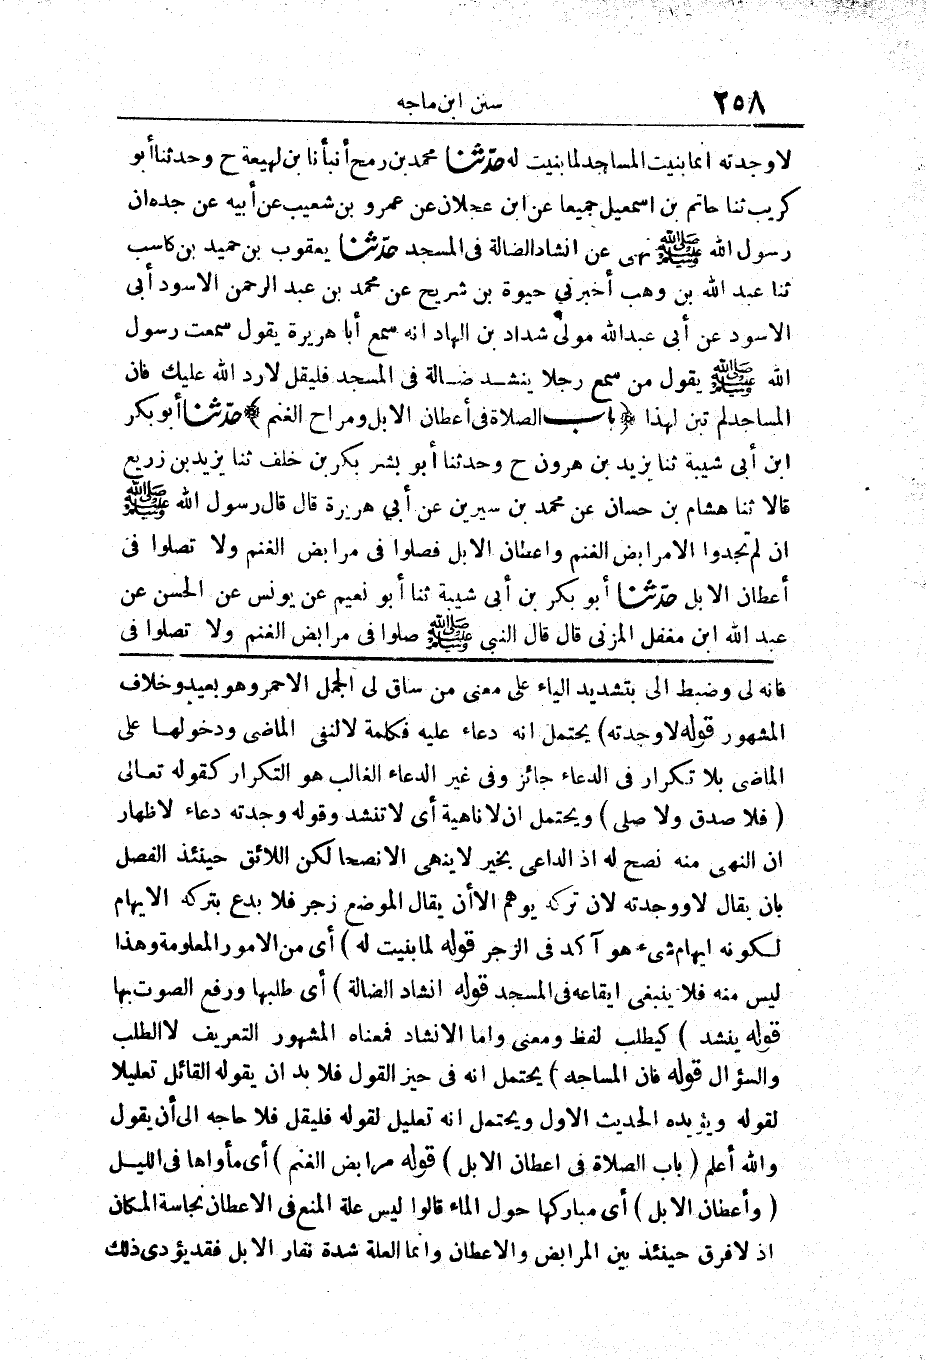 ٢٥٨ سنن ابن ماجه
لاوجدته انما بنيت المساجد لما بنيت له حدّثنا محمد بن رمح أنبأنا بن لهيعة ح وحدثنا أبو
كريب ثنا حاتم بن اسمعيل جميعا عن ابن عجلان عن عمرو بن شعيب عن أبيه عن جده ان
رسول الله ﷺ نهى عن انشاد الضالة فى المسجد حدّثنا يعقوب بن حميد بن كاسب
ثنا عبد الله بن وهب أخبرني حيوة بن شريح عن محمد بن عبد الرحمن الاسود أبى
الاسود عن أبى عبدالله مولى شداد بن الهاد انه سمع أبا هريرة يقول سمعت رسول
الله ﷺ يقول من سمع رجلا ينشد ضالة فى المسجد فليقل لارد الله عليك فان
المساجد لم تبن لهذا ﴿ باب الصلاة فى أعطان الابل ومراح الغنم ﴾ حدّثنا أبو بكر
ابن أبى شيبة ثنا يزيد بن هرون ح وحدثنا أبو بشر بكر بن خلف ثنا يزيد بن زريع
قالا ثنا هشام بن حسان عن محمد بن سيرين عن أبي هريرة قال قال رسول الله ﷺ
ان لم تجدوا الامرابض الغنم واعطان الابل فصلوا فى مرابض الغنم ولا تصلوا فى
أعطان الابل حدّثنا أبو بكر بن أبى شيبة ثنا أبو نعيم عن يونس عن الحسن عن
عبد الله ابن مغفل المزنى قال قال النبى ﷺ صلوا فى مرابض الغنم ولا تصلوا فى
فانه لى وضبط الى بتشديد الياء على معنى من ساق لى الجمل الاحمر وهو بعيد وخلاف
المشهور قوله لاوجدته) يحتمل انه دعاء عليه فكلمة لا لنفى الماضى ودخولها على
الماضى بلا تكرار فى الدعاء جائز وفى غير الدعاء الغالب هو التكرار كقوله تعالى
( فلا صدق ولا صلى ) ويحتمل ان لا ناهية أى لا تنشد وقوله وجدته دعاء لاظهار
ان النهى منه نصح له اذ الداعى بخير لاينهى الا نصحا لكن اللائق حينئذ الفصل
بان يقال لا ووجدته لان تركه يوهم الا أن يقال الموضع زجر فلا بدع بتركه الايهام
لكونه ايهام شىء هو آكد فى الزجر قوله لما بنيت له ) أى من الامور المعلومة وهذا
ليس منه فلا ينبغى ايقاعه فى المسجد قوله انشاد الضالة ) أى طلبها ورفع الصوت بها
قوله ينشد ) كيطلب لفظ ومعنى واما الانشاد فمعناه المشهور التعريف لا الطلب
والسؤال قوله فان المساجد ) يحتمل انه فى حيز القول فلا بد ان يقوله القائل تعليلا
لقوله ويؤيده الحديث الاول ويحتمل انه تعليل لقوله فليقل فلا حاجه الى أن يقول
والله أعلم ( باب الصلاة فى اعطان الابل ) قوله مرابض الغنم ) أى مأواها فى الليل
( وأعطان الابل ) أى مباركها حول الماء قالوا ليس علة المنع فى الاعطان نجاسة المكان
اذ لا فرق حينئذ بين المرابض والاعطان وانما العلة شدة نفار الابل فقد يؤدى ذلك